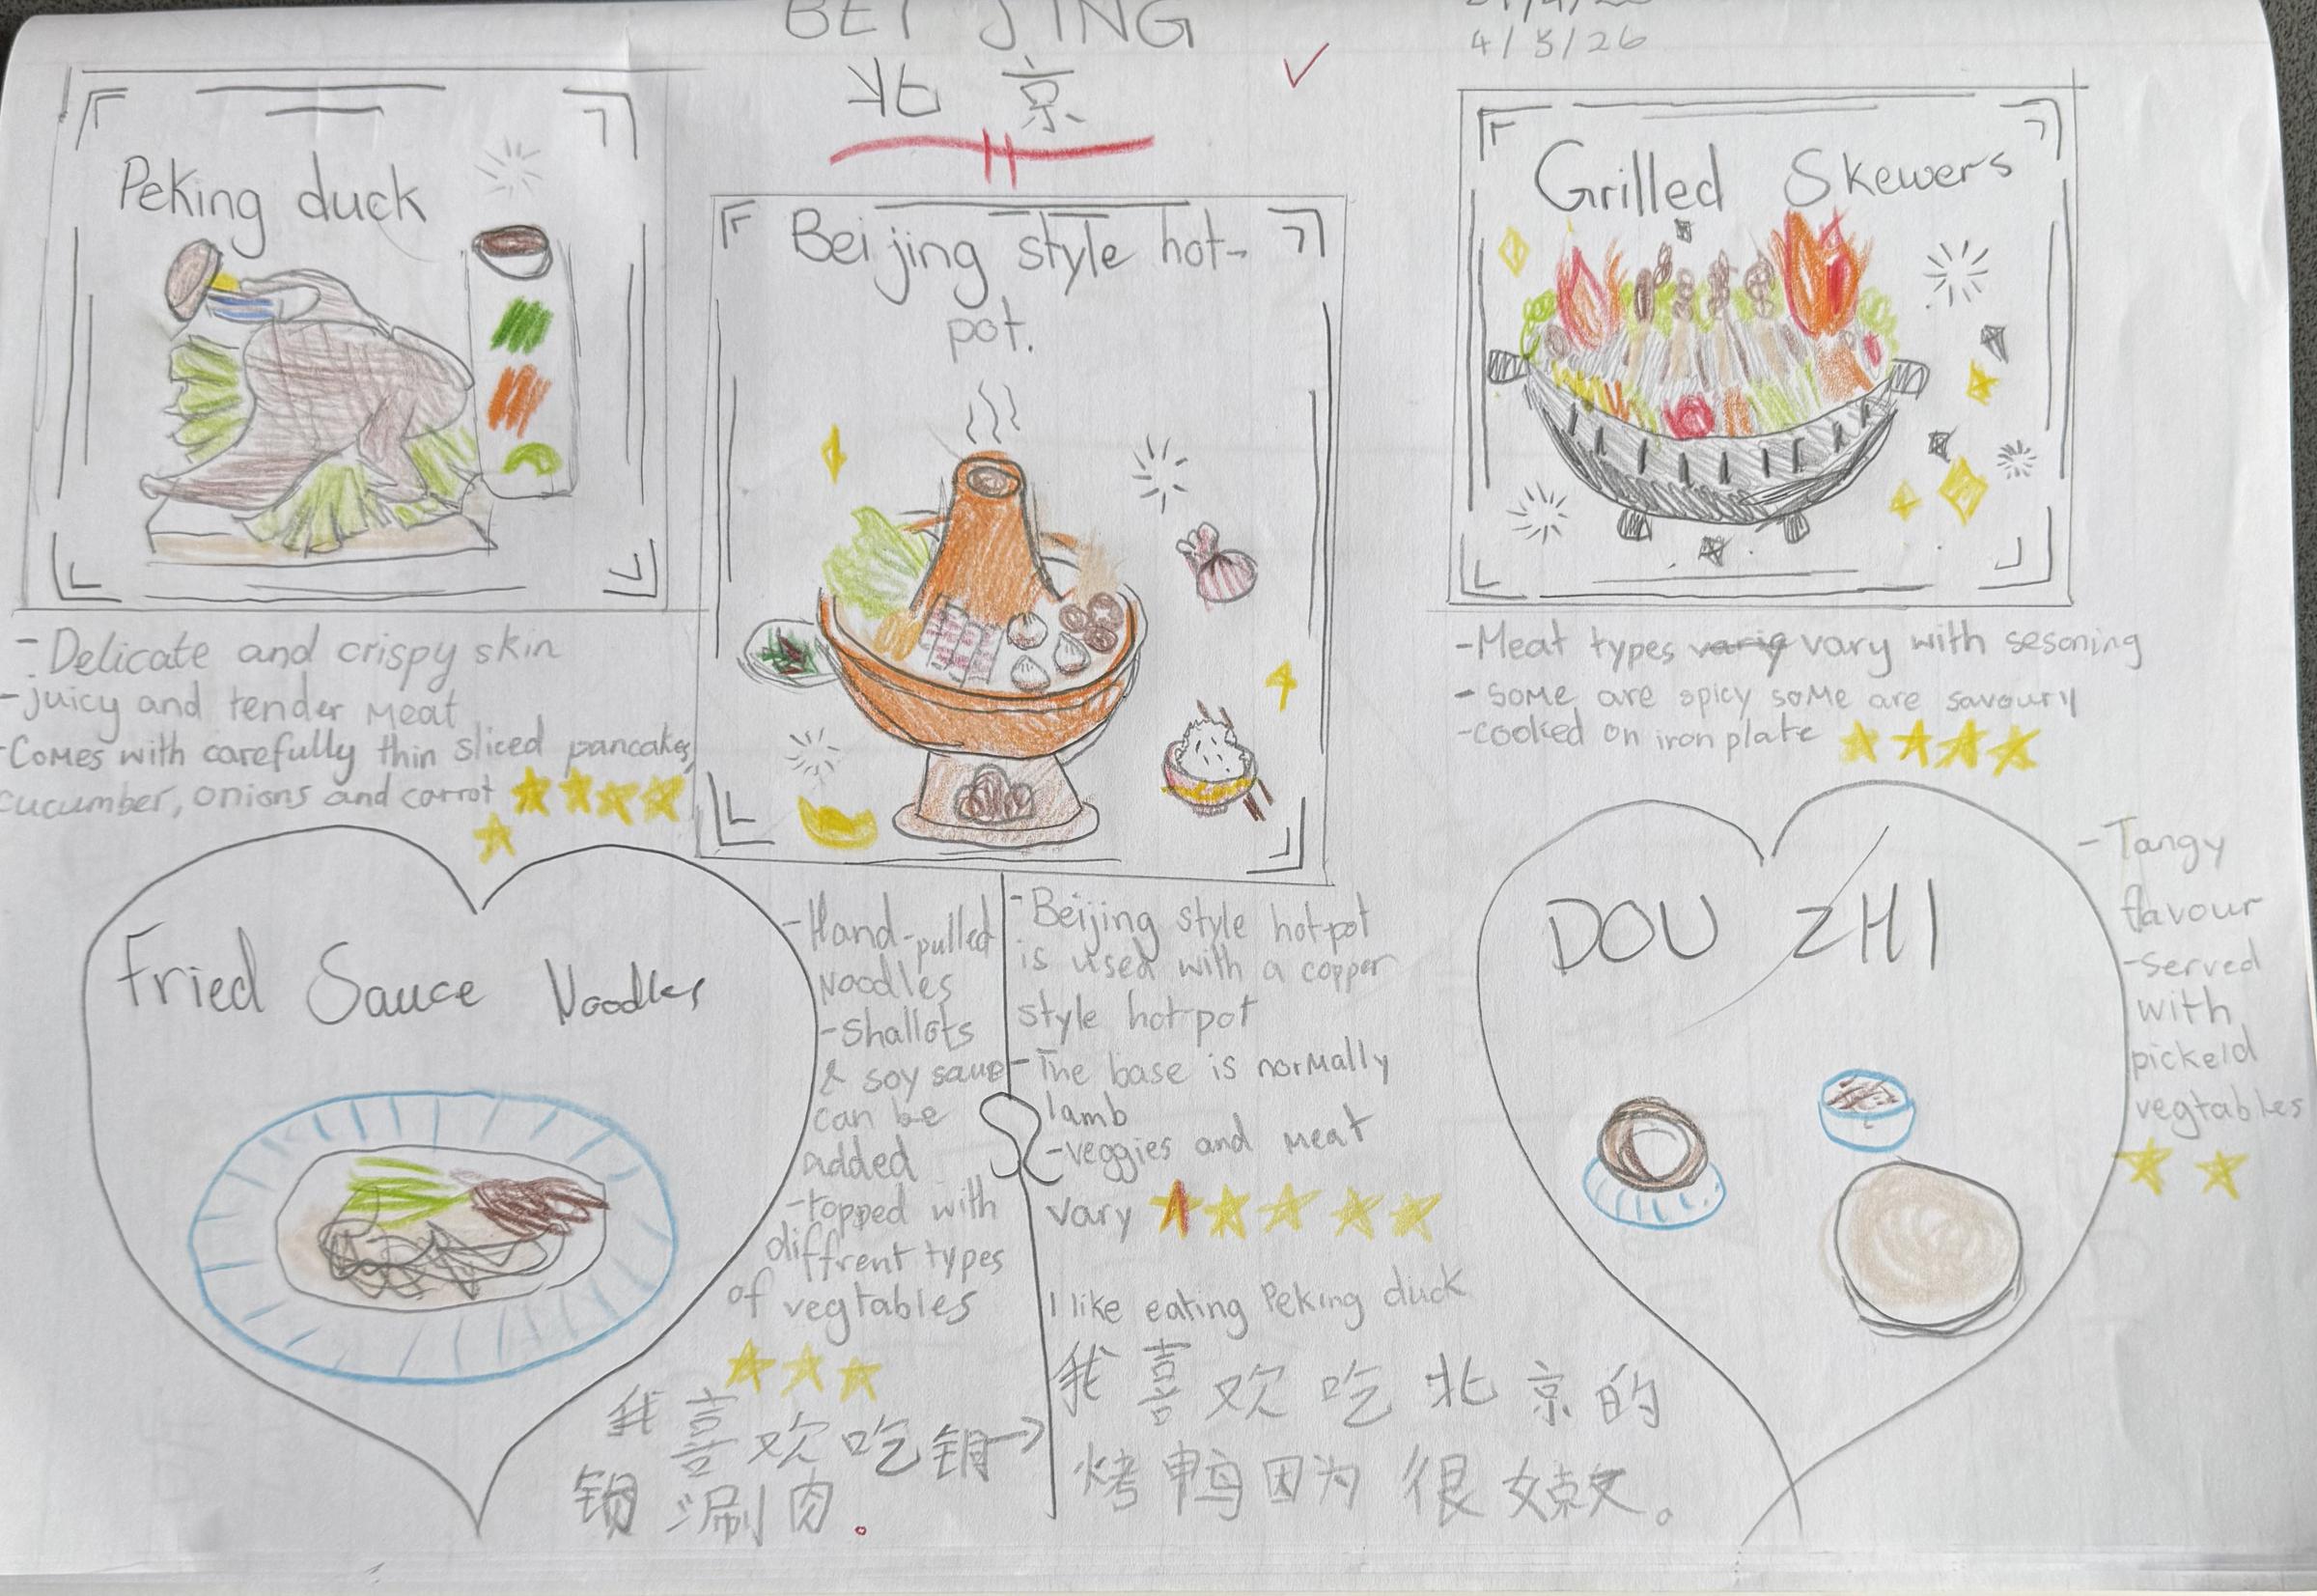 BEIJING
4/3/26
北京
Peking duck
- Delicate and crispy skin
- juicy and tender meat
- Comes with carefully thin sliced pancakes,
cucumber, onions and carrot
Beijing style hot-
pot.
Grilled Skewers
- Meat types varig vary with sesoning
- some are spicy some are savoury
- cooked on iron plate
Fried Sauce Noodles
- Hand-pulled
Noodles
- shallots
& soy sauce
can be
added
- topped with
diffrent types
of vegtables
我喜欢吃铜→
锅涮肉。
- Beijing style hot-pot
is used with a copper
style hot-pot
- The base is normally
lamb
- veggies and meat
vary
I like eating Peking duck
我喜欢吃北京的
烤鸭因为很嫩。
DOU ZHI
- Tangy
flavour
- served
with
pickeld
vegtables